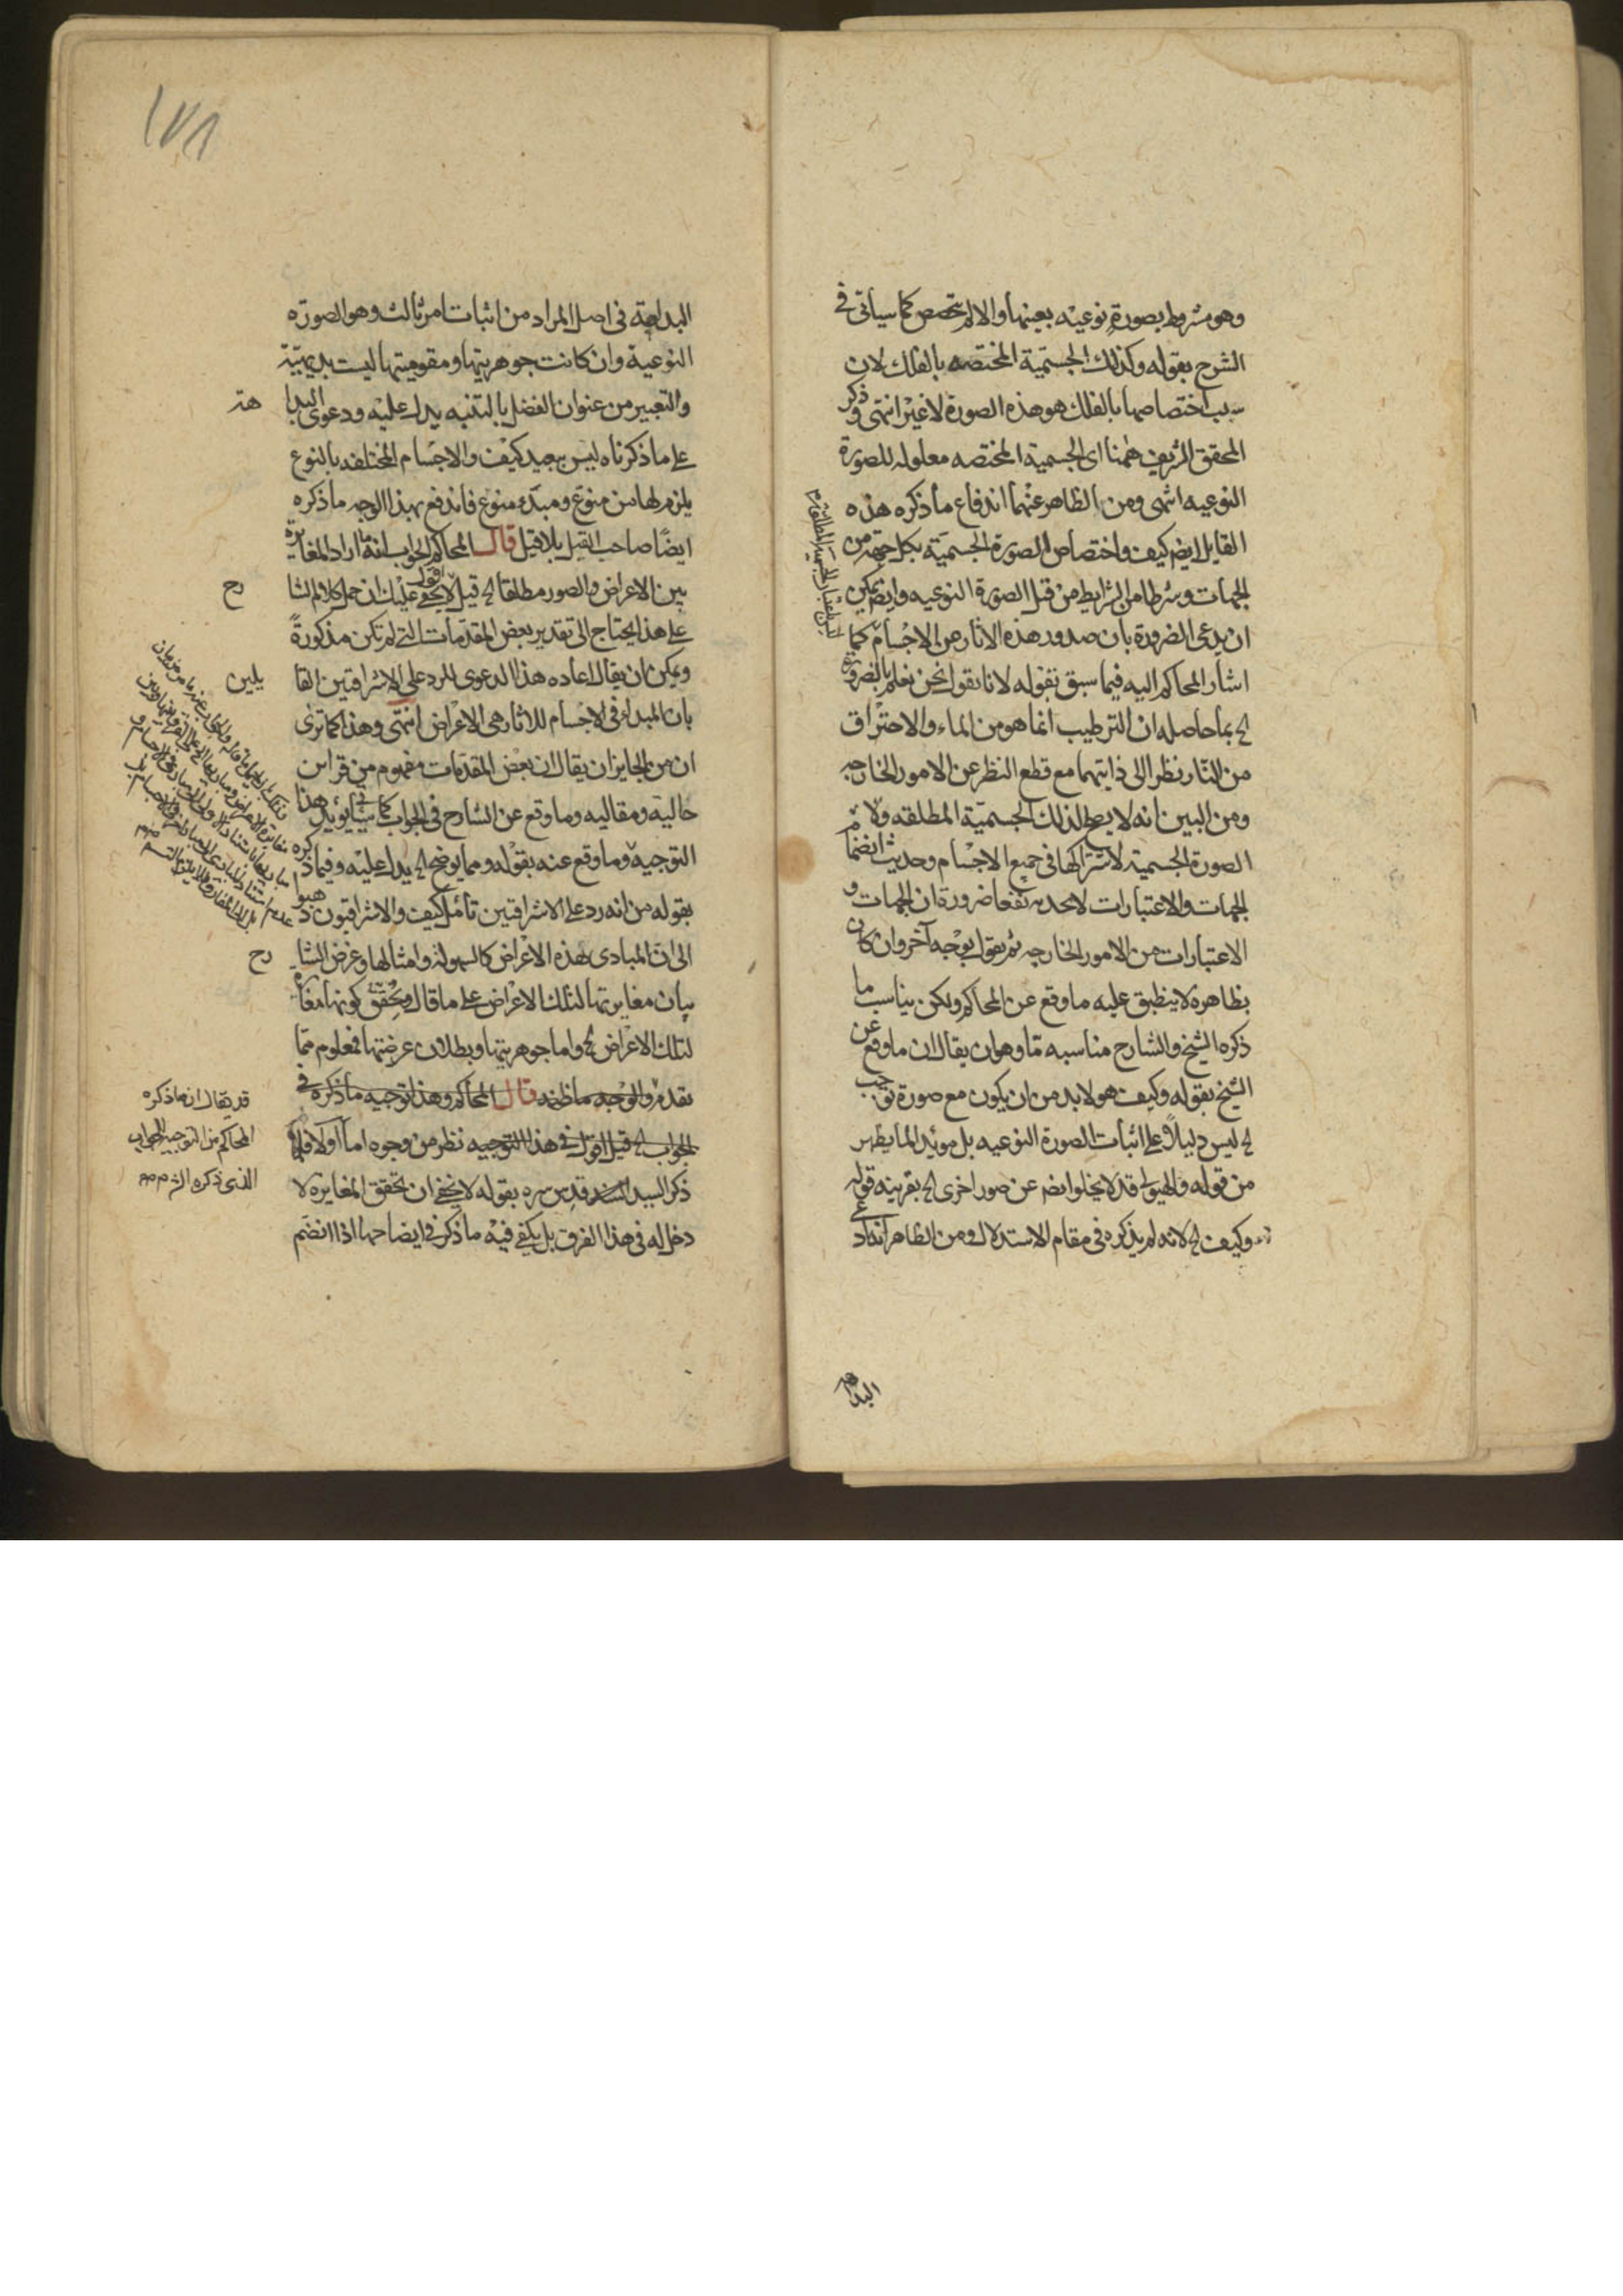 وهو مشروط بصورة نوعيه بعينها والا لم يتحصص كما سيأتى فى
الشرح بقوله وكذلك الجسمية المختصه بالفلك لان
سبب اختصاصها بالفلك هو هذه الصورة لا غير انتهى وذكر
المحقق الشريف ههنا اى الجسمية المختصه معلوله للصورة
النوعيه انتهى ومن الظاهر عنهما اندفاع ما ذكره هذه
القايل ايضم كيف واختصاص الصورة الجسمية بكل جهة من
الجهات وشرطها من الشرايط من قبل الصورة النوعيه وايضم يمكن
ان يدعى الضرورة بان صدور هذه الاثار من الاجسام كما
اشار المحاكم اليه فيما سبق بقوله لانا نقول نحن نعلم بالضرورة
الخ بما حاصله ان الترطيب انما هو من الماء والاحتراق
من النار نظرا الى ذاتيهما مع قطع النظر عن الامور الخارجه
ومن البين انه لا يصلح لذلك الجسمية المطلقه ولا
الصورة الجسمية لاشتراكها فى جميع الاجسام وحديث انضمام
الجهات والاعتبارات لا يجديه نفعا ضرورة ان الجهات و
الاعتبارات من الامور الخارجه ثم يقول بوجه آخر وان كان
بظاهره لا ينطبق عليه ما وقع عن المحاكم ولكن يناسب ما
ذكره الشيخ والشارح مناسبه ما وهو ان يقال ان ما وقع عن
الشيخ بقوله وكيف هو لابد من ان يكون مع صورة توجب
الخ ليس دليلاً على اثبات الصورة النوعيه بل مويد لما يظهر
من قوله والهيولى قد لا يخلو ايضم عن صور اخرى الخ بقرينه قوله
وكيف الخ لانه لم يذكره فى مقام الاستدلال ومن الظاهر ان ادعاء
البداهة
١٧٨
البداهة فى اصل المراد من اثبات امر ثالث وهو الصورة
النوعية وان كانت جوهريتها ومقوميتها ليست بديهيّة
والتعبير من عنوان الفصل بالتنبيه يدل عليه ودعوى البدا هة
على ما ذكرناه ليس ببعيد كيف والاجسام المختلفه بالنوع
يلزم لها من منوّع ومبدء منوع فاندفع بهذا الوجه ما ذكره
ايضًا صاحب القيل بلا قيل قال المحاكم الجواب انه ما اراد المغايرة
بين الاعراض والصور مطلقا الخ قيل اقول لا يخفى عليك ان حمل كلام الشا رح
على هذا يحتاج الى تقدير بعض المقدمات التى لم تكن مذكورةً
ويمكن ان يقال اعاده هذا الدعوى للرد على الاشراقيين القا يلين
بان المبداء فى الاجسام للاثار هى الاعراض انتهى وهذا كما ترى
ان من الجايز ان يقال ان بعض المقدمات مفهوم من قراين
حاليه ومقاليه وما وقع عن الشارح فى الجواب كما سيأتى يؤيد هذا
التوجيه وما وقع عنه بقوله ومما يوضح الخ يدل عليه وفيما ذكره
بقوله من انه رد على الاشراقيين تأمل كيف والاشراقيون ذهبوا
الى ان المبادى بهذه الاعراض كالسهوله وامثالها وغرض الشا رح
بيان مغايرتها لتلك الاعراض على ما قال ويحقق كونها مغايرة
لتلك الاعراض الخ واما جوهريتها وبطلان عرضيتها فمعلوم مما
تقدم والوجه ما ظنه قال المحاكم وهذا توجيه ما ذكره فى
الجواب الخ قيل اقول فى هذا التوجيه نظر من وجوه اما اولا فلما
ذكر السيد السند قدس سره بقوله لا يخفى ان تحقق المغايرة لا
دخل له فى هذا الفرق بل يكفى فيه ما ذكر فى ايضاحها اذا انضم
قد يقال ان ما ذكره
المحاكم من التوجيه الجواب
الذى ذكره الشرح